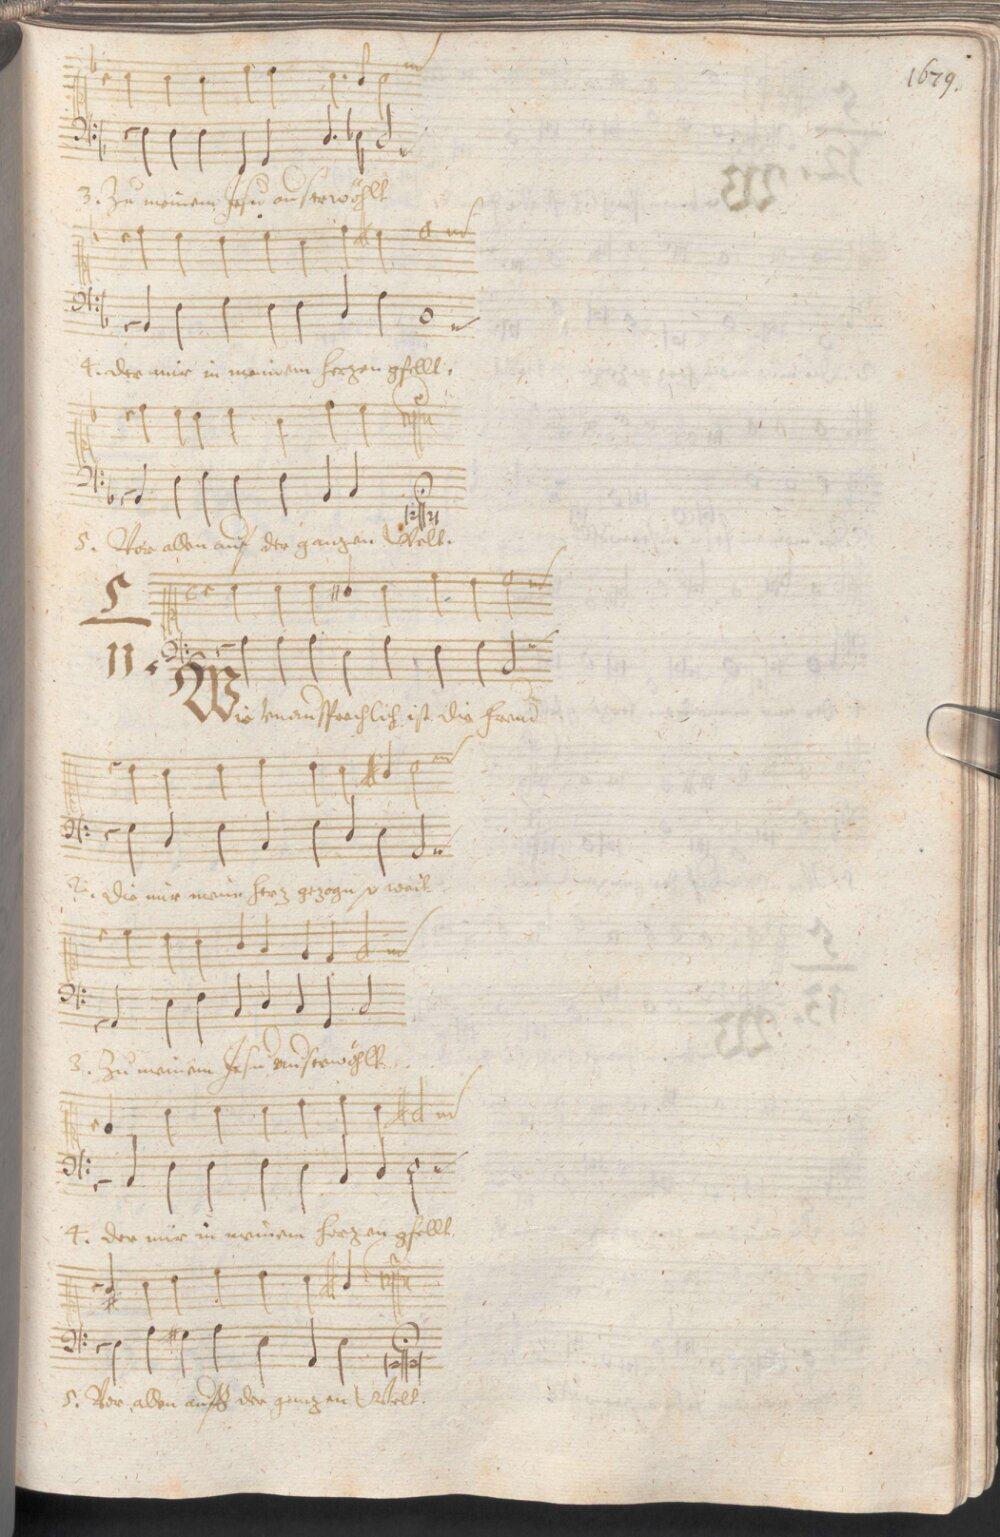 1679.
3. Zu meinem Jesu auserwöhlt
4. der mir in meinem herzen gfellt.
5. Vor allen auf der ganzen Welt.
5
11.
Wie unaussprechlich ist die freud
2. die mir mein herz gezogn
3. Zu meinem Jesu auserwöhlt.
4. der mir in meinem herzen gfellt.
5. Vor allen auff der ganzen Welt.